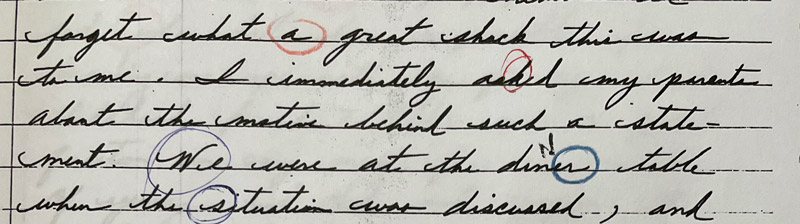 forget what a great shock this was
to me. I immediately askd my parents
about the motive behind such a state-
ment. We were at the diner table
N
when the situation was discussed, and